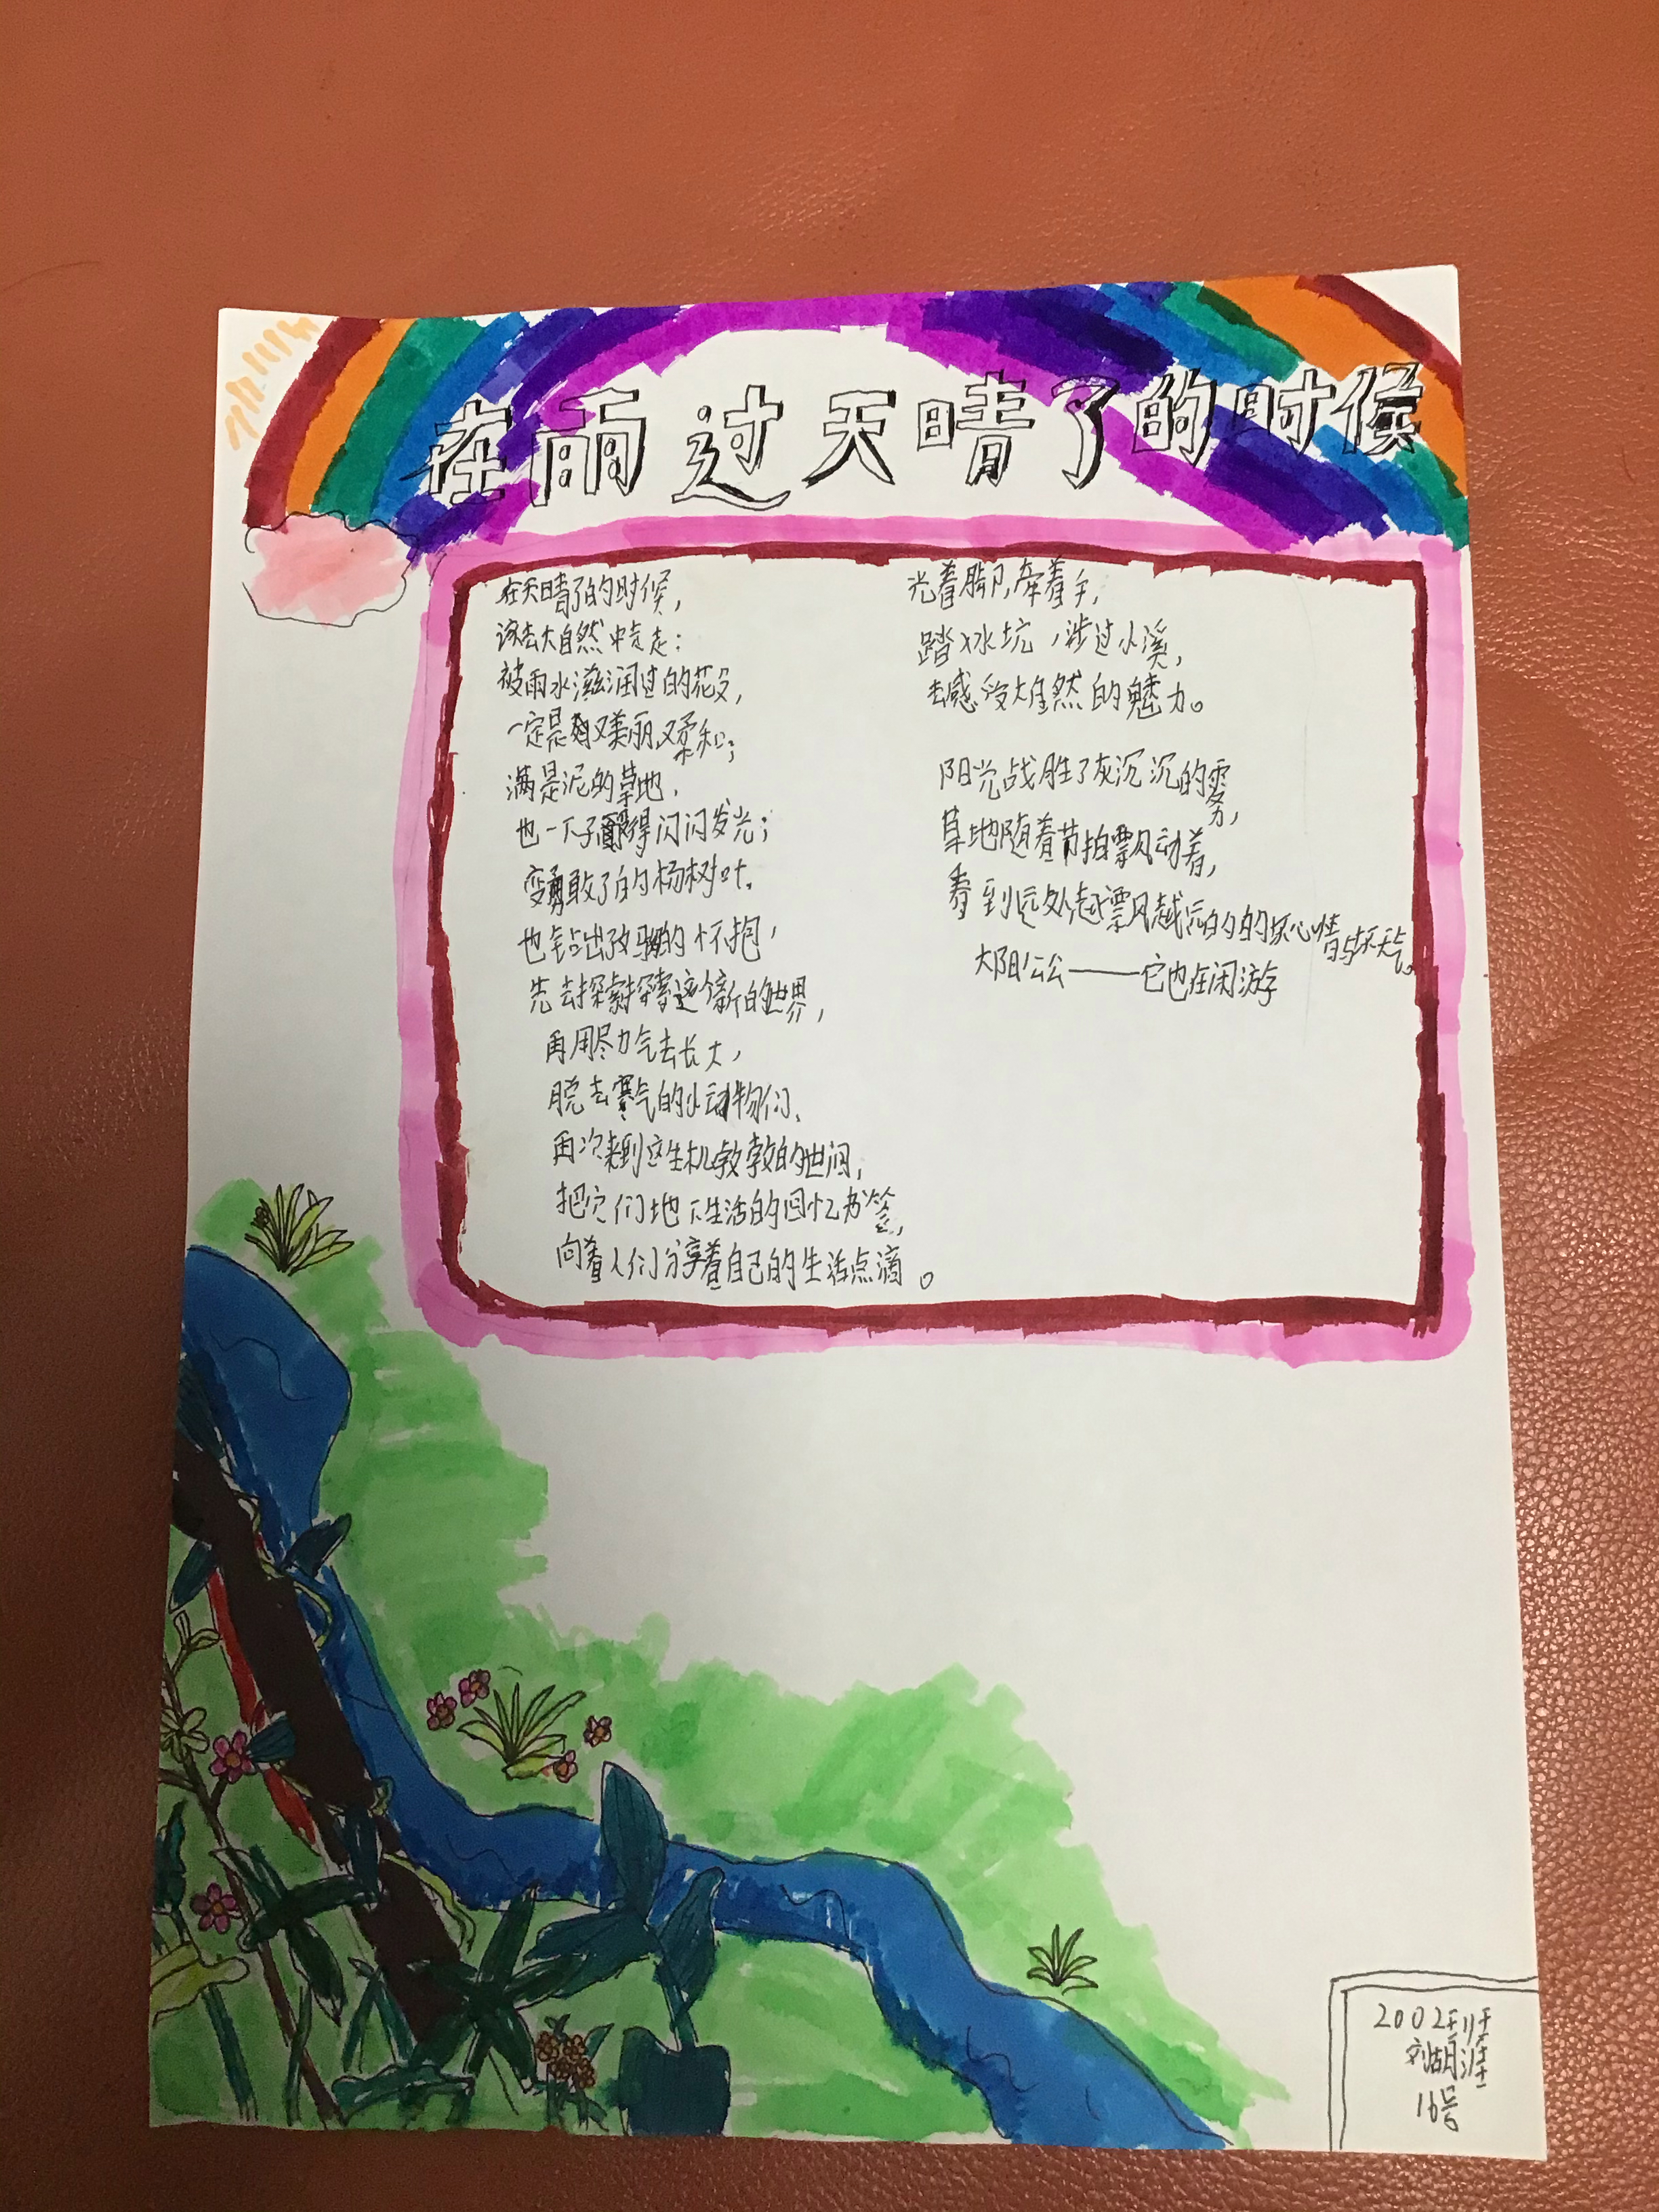 在雨过天晴了的时候
在天晴了的时候,
该去大自然中走走:
被雨水滋润过的花朵,
一定是又美丽又柔和;
满是泥的草地,
也一下子变得闪闪发光;
变勇敢了的杨树叶,
也钻出了妈妈的怀抱,
先去探索探索这个新的世界,
再用尽力气去长大,
脱去寒气的小动物们,
再次来到这生机勃勃的世间,
把它们地下生活的回忆书签,
向着人们分享着自己的生活点滴。
光着脚,牵着手,
踏水坑,涉过小溪,
去感受大自然的魅力。
阳光战胜了灰沉沉的雾,
草地随着节拍飘动着,
看到远处越飘越远的坏心情与坏天气。
太阳公公——它也在闲游
2002班
刘胡涯
16号